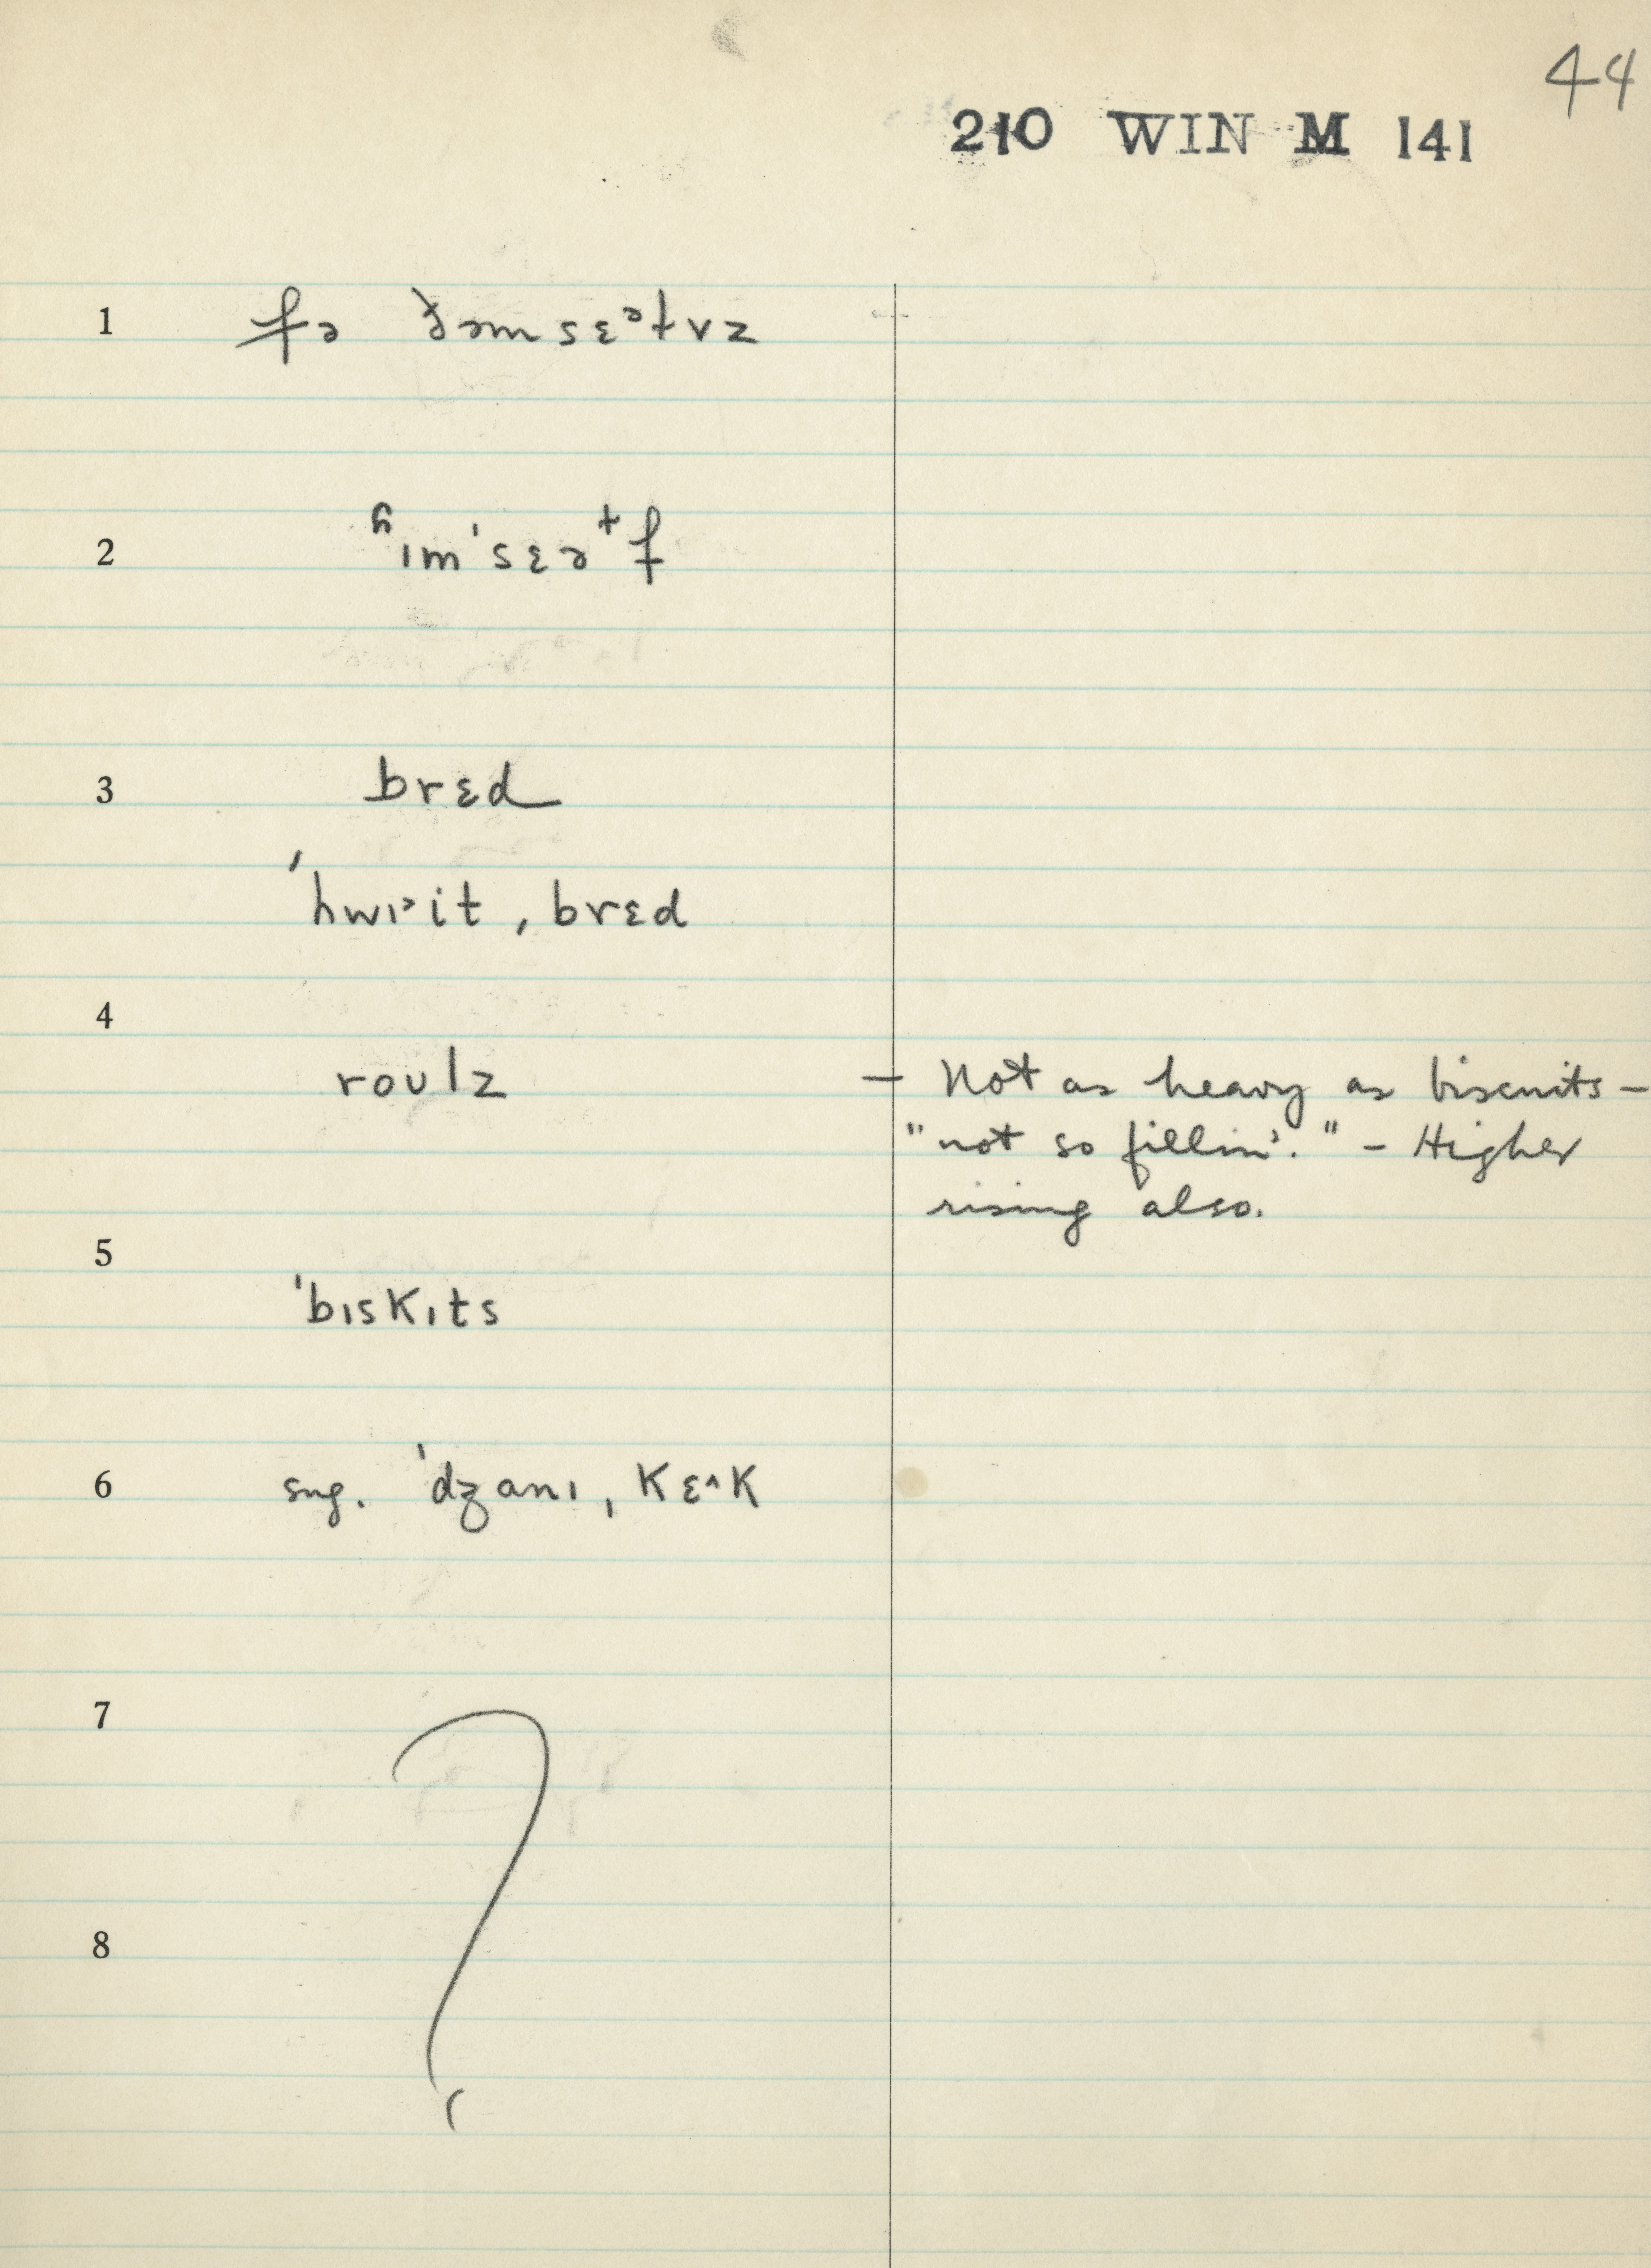 44
210 WIN M 141
1 fə ðəmsɛᵊɫvz
2 ʱɪm'sɛəɫf
3 brɛd
'hwɪ˃it ˌbrɛd
4
roʊlz — Not as heavy as biscuits —
"not so fillin'." — Higher
rising also.
5
'bɪskɪts
6 sug. 'dʒanɪ ˌkɛ^k
7 ?
8